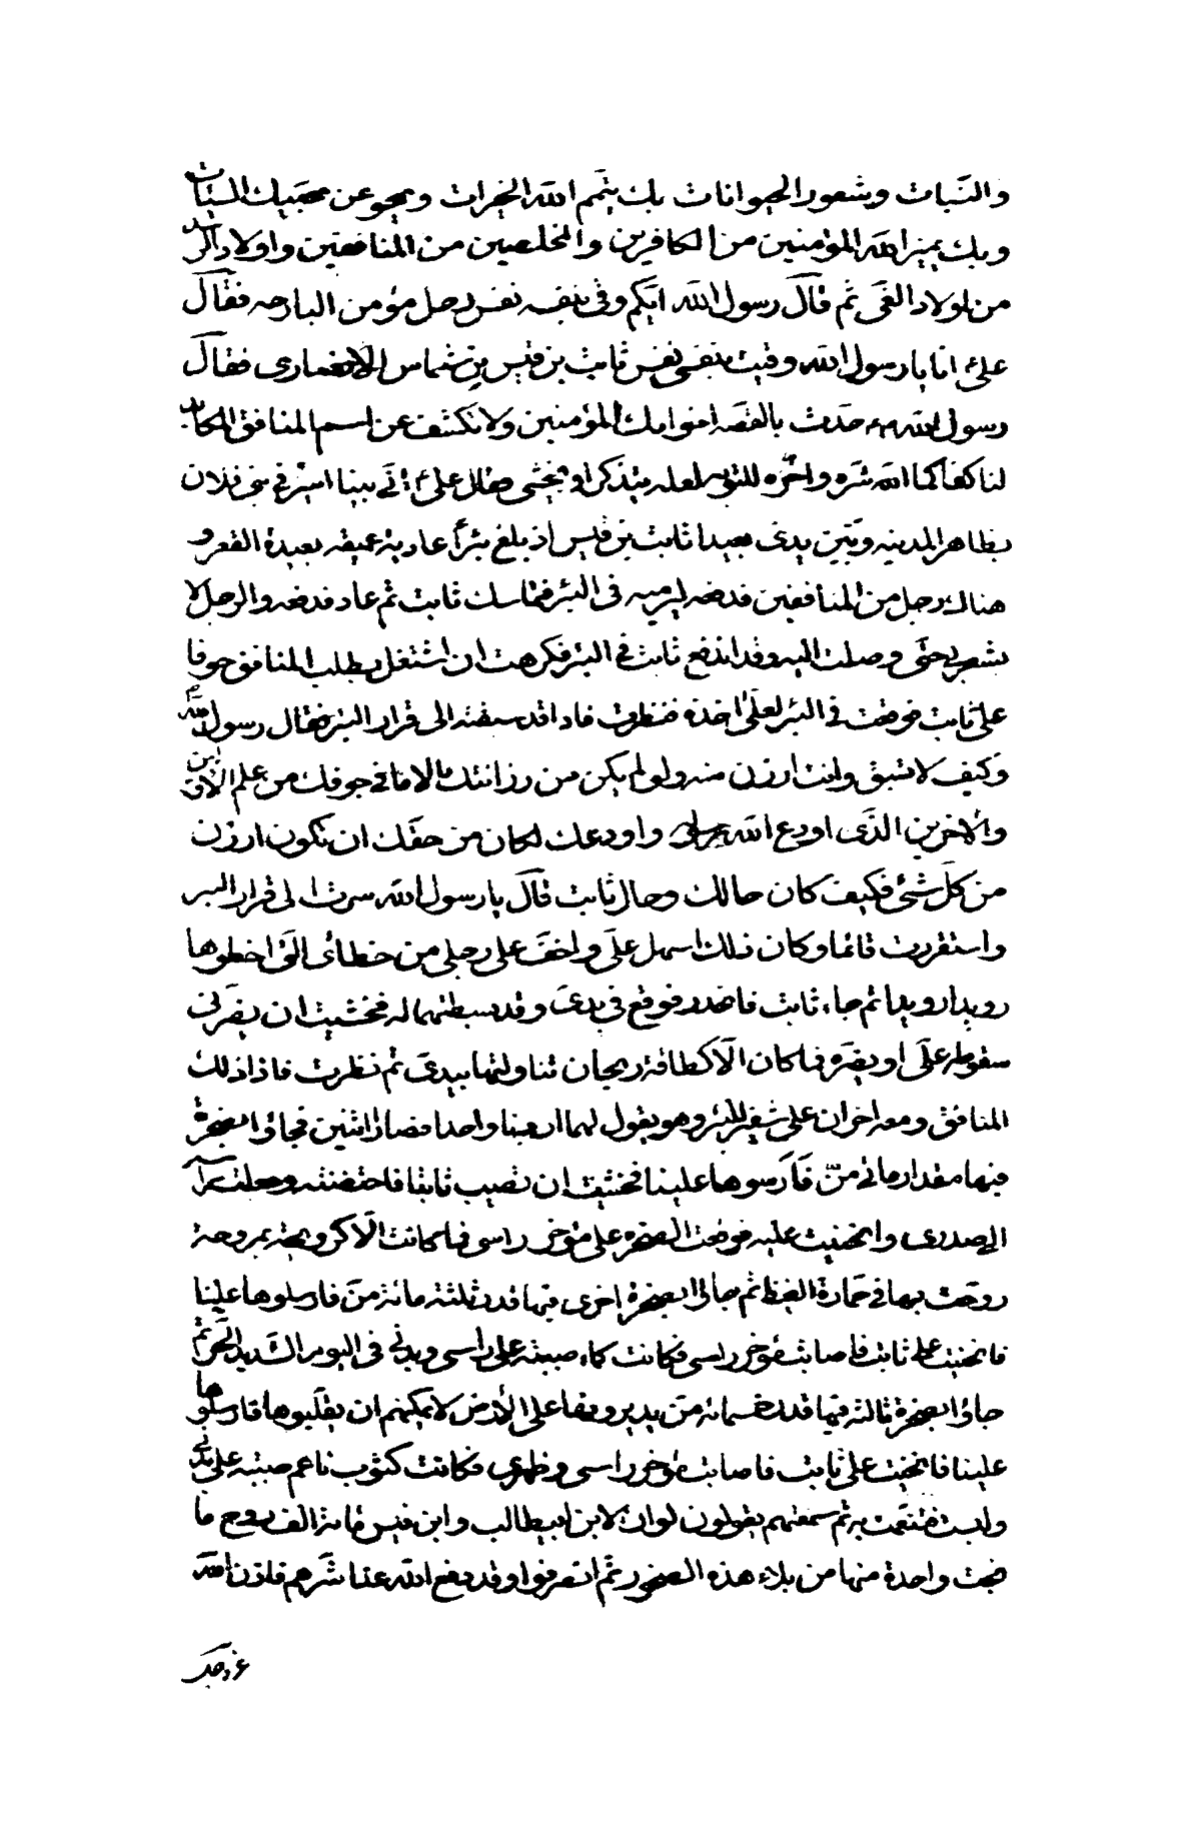 والنبات وشعور الحيوانات بك يتمم الله الخيرات ويمحو عن محبيك السيئات
وبك يميز الله المؤمنين من الكافرين والمخلصين من المنافقين واولاد الرشد
من اولاد الغى ثم قال رسول الله ايكم وقى بنفسه نفس رجل مؤمن البارحه فقال
على انا يا رسول الله وقيت بنفسى نفس ثابت بن قيس بن شماس الانصارى فقال
رسول الله حدث بالقصه اخوانك المؤمنين ولا تكشف عن اسم المنافق المكايد
لنا كفاكما الله شره واخره للتوبه لعله يتذكر او يخشى فقال على انى بينا اسير فى بنى فلان
بظاهر المدينه وبين يدى بعيدا ثابت بن قيس اذ بلغ بئرا عادية عميقه بعيدة القعر و
هناك رجل من المنافقين فدفعه ليرميه فى البئر فتماسك ثابت ثم عاد فدفعه والرجل لا
يشعر بى حتى وصلت اليه وقد اندفع ثابت فى البئر فكرهت ان اشتغل بطلب المنافق خوفا
على ثابت فوقعت فى البئر لعلى اخذه فنظرت فاذا قد سبقته الى قرار البئر فقال رسول الله
وكيف لا تسبق وانت ارزن منه ولو لم يكن من رزانتك الا ما فى جوفك من علم الاولين
والاخرين الذى اودع الله رسوله واودعك لكان من حقك ان تكون ارزن
من كل شئ فكيف كان حالك وحال ثابت قال يا رسول الله صرت الى قرار البئر
واستقررت قائما وكان ذلك اسهل على واخف على رجلى من خطائى التى اخطوها
رويدا رويدا ثم جاء ثابت فانحدر فوقع فى يدى وقد بسطتهما له فخشيت ان يضرنى
سقوطه على او يضره فما كان الا كطاقة ريحان تناولتها بيدى ثم نظرت فاذا ذلك
المنافق ومعه اخران على شفير البئر وهو يقول لهما اردنا واحدا فصار اثنين فجاؤا بصخرة
فيها مقدار مأتى من فارسوها علينا فخشيت ان تصيب ثابتا فاحتضنته وجعلت راسه
الى صدرى وانحنيت عليه فوقعت الصخره على مؤخر راسى فما كانت الا كترويحة بمروحة
روحت بها فى حمارة القيظ ثم جاؤا بصخرة اخرى فيها قدر ثلثة مائة من فارسلوها علينا
فانحنيت على ثابت فاصابت مؤخر راسى فكانت كماء صببته على راسى وبدنى فى اليوم الشديد الحر ثم
جاؤا بصخرة ثالثه فيها قدر خمسمائه من يديرونها على الارض لا يمكنهم ان يقلبوها فارسلوها
علينا فانحنيت على ثابت فاصابت مؤخر راسى وظهرى فكانت كثوب ناعم صببته على بدنى
ولبست فتنعمت به ثم سمعتهم يقولون لو ان لابن ابيطالب وابن قيس مائة الف روح ما
نجت واحدة منها من بلاء هذه الصخور ثم انصرفوا وقد دفع الله عنا شرهم فاذن الله
عز وجل